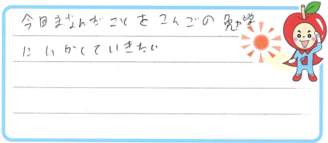 今日まなんだことをこんごの勉学
にいかしていきたい